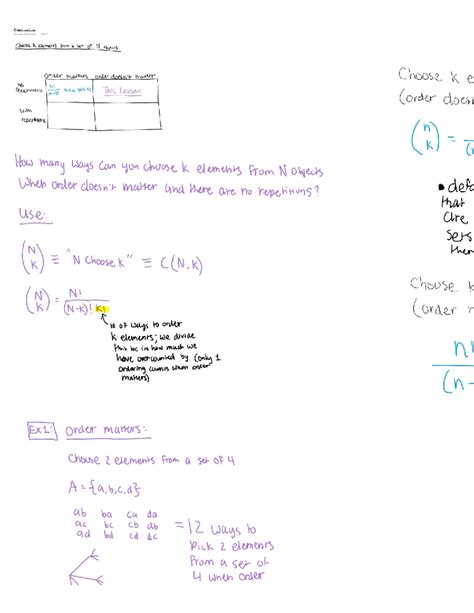 Combinations
Choose k elements from a set of N objects
order matters order doesn't matter
no repetitions
This Lesson
with repetitions
How many ways can you choose k elements from N objects
when order doesn't matter and there are no repetitions?
Use:
(N k) ≡ "N choose k" ≡ C(N,k)
(N k) = N! / (N-k)! k!
# of ways to order
k elements; we divide
this bc is how much we
have overcounted by (only 1
ordering counts when order
matters)
Ex1: Order matters:
Choose 2 elements from a set of 4
A = {a,b,c,d}
ab ba ca da
ac bc cb db
ad bd cd dc
= 12 ways to
pick 2 elements
from a set of
4 when order
Choose k e
(order doesn
(n k) =
• defa
that
are
sets
ther
Choose k
(order n
n!
(n-